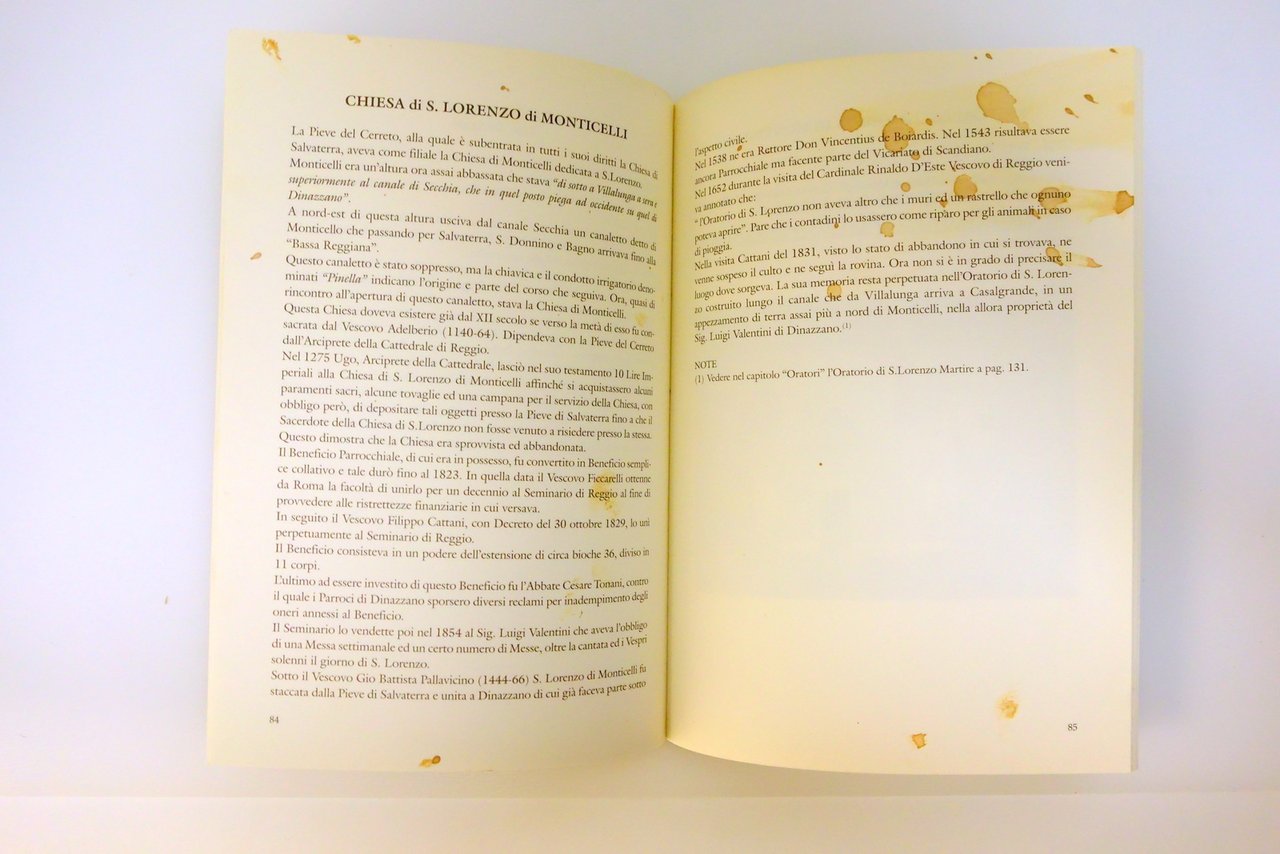 CHIESA di S. LORENZO di MONTICELLI
La Pieve del Cerreto, alla quale è subentrata in tutti i suoi diritti la Chiesa di
Salvaterra, aveva come filiale la Chiesa di Monticelli dedicata a S.Lorenzo.
Monticelli era un'altura ora assai abbassata che stava "di sotto a Villalunga a sera e
superiormente al canale di Secchia, che in quel posto piega ad occidente su quel di
Dinazzano".
A nord-est di questa altura usciva dal canale Secchia un canaletto detto di
Monticello che passando per Salvaterra, S. Donnino e Bagno arrivava fino alla
"Bassa Reggiana".
Questo canaletto è stato soppresso, ma la chiavica e il condotto irrigatorio deno-
minati "Pinella" indicano l'origine e parte del corso che seguiva. Ora, quasi di
rincontro all'apertura di questo canaletto, stava la Chiesa di Monticelli.
Questa Chiesa doveva esistere già dal XII secolo se verso la metà di esso fu con-
sacrata dal Vescovo Adelberio (1140-64). Dipendeva con la Pieve del Cerreto
dall'Arciprete della Cattedrale di Reggio.
Nel 1275 Ugo, Arciprete della Cattedrale, lasciò nel suo testamento 10 Lire Im-
periali alla Chiesa di S. Lorenzo di Monticelli affinché si acquistassero alcuni
paramenti sacri, alcune tovaglie ed una campana per il servizio della Chiesa, con
obbligo però, di depositare tali oggetti presso la Pieve di Salvaterra fino a che il
Sacerdote della Chiesa di S.Lorenzo non fosse venuto a risiedere presso la stessa.
Questo dimostra che la Chiesa era sprovvista ed abbandonata.
Il Beneficio Parrocchiale, di cui era in possesso, fu convertito in Beneficio sempli-
ce collativo e tale durò fino al 1823. In quella data il Vescovo Ficcarelli ottenne
da Roma la facoltà di unirlo per un decennio al Seminario di Reggio al fine di
provvedere alle ristrettezze finanziarie in cui versava.
In seguito il Vescovo Filippo Cattani, con Decreto del 30 ottobre 1829, lo unì
perpetuamente al Seminario di Reggio.
Il Beneficio consisteva in un podere dell'estensione di circa bioche 36, diviso in
11 corpi.
L'ultimo ad essere investito di questo Beneficio fu l'Abbate Cesare Tonani, contro
il quale i Parroci di Dinazzano sporsero diversi reclami per inadempimento degli
oneri annessi al Beneficio.
Il Seminario lo vendette poi nel 1854 al Sig. Luigi Valentini che aveva l'obbligo
di una Messa settimanale ed un certo numero di Messe, oltre la cantata ed i Vespri
solenni il giorno di S. Lorenzo.
Sotto il Vescovo Gio Battista Pallavicino (1444-66) S. Lorenzo di Monticelli fu
staccata dalla Pieve di Salvaterra e unita a Dinazzano di cui già faceva parte sotto
84
l'aspetto civile.
Nel 1538 ne era Rettore Don Vincentius de Boiardis. Nel 1543 risultava essere
ancora Parrocchiale ma facente parte del Vicariato di Scandiano.
Nel 1652 durante la visita del Cardinale Rinaldo D'Este Vescovo di Reggio veni-
va annotato che:
"l'Oratorio di S. Lorenzo non aveva altro che i muri ed un rastrello che ognuno
poteva aprire". Pare che i contadini lo usassero come riparo per gli animali in caso
di pioggia.
Nella visita Cattani del 1831, visto lo stato di abbandono in cui si trovava, ne
venne sospeso il culto e ne seguì la rovina. Ora non si è in grado di precisare il
luogo dove sorgeva. La sua memoria resta perpetuata nell'Oratorio di S. Loren-
zo costruito lungo il canale che da Villalunga arriva a Casalgrande, in un
appezzamento di terra assai più a nord di Monticelli, nella allora proprietà del
Sig. Luigi Valentini di Dinazzano.(1)
NOTE
(1) Vedere nel capitolo "Oratori" l'Oratorio di S.Lorenzo Martire a pag. 131.
85